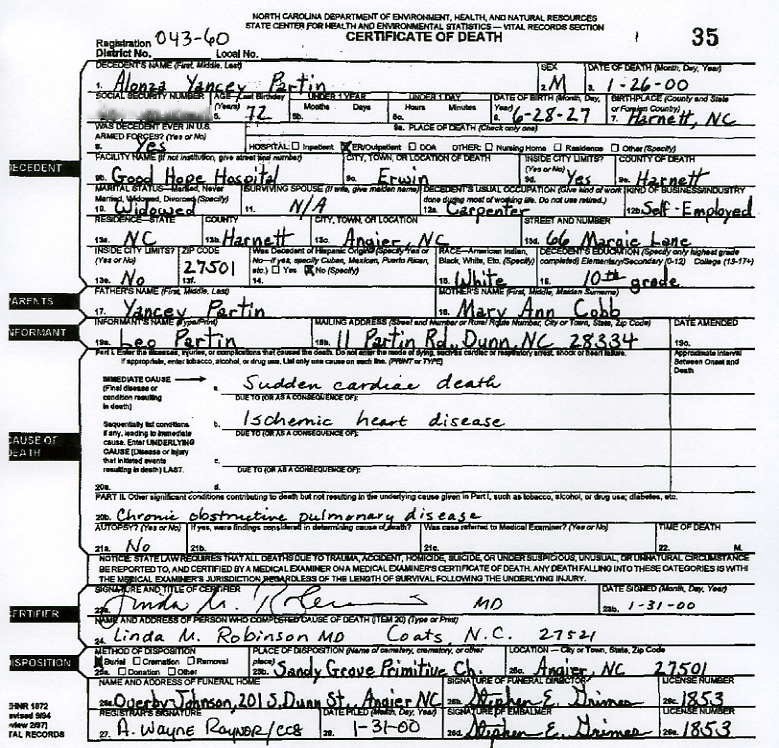 NORTH CAROLINA DEPARTMENT OF ENVIRONMENT, HEALTH, AND NATURAL RESOURCES
STATE CENTER FOR HEALTH AND ENVIRONMENTAL STATISTICS — VITAL RECORDS SECTION
CERTIFICATE OF DEATH 35
Registration District No. 043-60 Local No.
DECEDENT'S NAME (First, Middle, Last) SEX DATE OF DEATH (Month, Day, Year)
1. Alonza Yancey Partin 2. M 3. 1-26-00
SOCIAL SECURITY NUMBER AGE—Last Birthday (Years) UNDER 1 YEAR UNDER 1 DAY DATE OF BIRTH (Month, Day, Year) BIRTHPLACE (County and State or Foreign County)
5. 72 5b. Months Days 5c. Hours Minutes 6. 6-28-27 7. Harnett, NC
WAS DECEDENT EVER IN U.S. ARMED FORCES? (Yes or No) 9a. PLACE OF DEATH (Check only one)
8. Yes HOSPITAL: Inpatient ER/Outpatient DOA OTHER: Nursing Home Residence Other (Specify)
DECEDENT
FACILITY NAME (If not institution, give street and number) CITY, TOWN, OR LOCATION OF DEATH INSIDE CITY LIMITS? (Yes or No) COUNTY OF DEATH
9b. Good Hope Hospital 9c. Erwin 9d. Yes 9e. Harnett
MARITAL STATUS—Married, Never Married, Widowed, Divorced (Specify) SURVIVING SPOUSE (If wife, give maiden name) DECEDENT'S USUAL OCCUPATION (Give kind of work done during most of working life. Do not use retired.) KIND OF BUSINESS/INDUSTRY
10. Widowed 11. N/A 12a. Carpenter 12b. Self-Employed
RESIDENCE—STATE COUNTY CITY, TOWN, OR LOCATION STREET AND NUMBER
13a. NC 13b. Harnett 13c. Angier, NC 13d. 66 Margie Lane
INSIDE CITY LIMITS? (Yes or No) ZIP CODE Was Decedent of Hispanic Origin? (Specify Yes or No—if yes, specify Cuban, Mexican, Puerto Rican, etc.) Yes No (Specify) RACE—American Indian, Black, White, Etc. (Specify) DECEDENT'S EDUCATION (Specify only highest grade completed) Elementary/Secondary (0-12) College (13-17+)
13e. No 27501 13f. 14. 15. White 16. 10th grade
PARENTS
FATHER'S NAME (First, Middle, Last) MOTHER'S NAME (First, Middle, Maiden Surname)
17. Yancey Partin 18. Mary Ann Cobb
INFORMANT
INFORMANT'S NAME (Type/Print) MAILING ADDRESS (Street and Number or Rural Route Number, City or Town, State, Zip Code) DATE AMENDED
19a. Leo Partin 19b. 11 Partin Rd., Dunn, NC 28334 19c.
Part I. Enter the diseases, injuries, or complications that caused the death. Do not enter the mode of dying, such as cardiac or respiratory arrest, shock or heart failure.
If appropriate, enter tobacco, alcohol, or drug use. List only one cause on each line. (PRINT or TYPE)
Approximate Interval Between Onset and Death
IMMEDIATE CAUSE (Final disease or condition resulting in death) a. Sudden cardiac death
DUE TO (OR AS A CONSEQUENCE OF):
Sequentially list conditions if any, leading to immediate cause. Enter UNDERLYING CAUSE (Disease or injury that initiated events resulting in death) LAST. b. Ischemic heart disease
DUE TO (OR AS A CONSEQUENCE OF):
c.
DUE TO (OR AS A CONSEQUENCE OF):
20a. d.
CAUSE OF DEATH
PART II. Other significant conditions contributing to death but not resulting in the underlying cause given in Part I, such as tobacco, alcohol, or drug use; diabetes, etc.
20b. Chronic obstructive pulmonary disease
AUTOPSY? (Yes or No) If yes, were findings considered in determining cause of death? Was case referred to Medical Examiner? (Yes or No) TIME OF DEATH
21a. No 21b. 21c. 22. M.
NOTICE: STATE LAW REQUIRES THAT ALL DEATHS DUE TO TRAUMA, ACCIDENT, HOMICIDE, SUICIDE, OR UNDER SUSPICIOUS, UNUSUAL, OR UNNATURAL CIRCUMSTANCE
BE REPORTED TO, AND CERTIFIED BY A MEDICAL EXAMINER ON A MEDICAL EXAMINER'S CERTIFICATE OF DEATH. ANY DEATH FALLING INTO THESE CATEGORIES IS WITHIN
THE MEDICAL EXAMINER'S JURISDICTION REGARDLESS OF THE LENGTH OF SURVIVAL FOLLOWING THE UNDERLYING INJURY.
SIGNATURE AND TITLE OF CERTIFIER DATE SIGNED (Month, Day, Year)
Linda M. MD 23b. 1-31-00
CERTIFIER
NAME AND ADDRESS OF PERSON WHO COMPLETED CAUSE OF DEATH (ITEM 20) (Type or Print)
24. Linda M. Robinson MD Coats, N.C. 27521
DISPOSITION
METHOD OF DISPOSITION PLACE OF DISPOSITION (Name of cemetery, crematory, or other place) LOCATION — City or Town, State, Zip Code
Burial Cremation Removal
25a. Donation Other 25b. Sandy Grove Primitive Ch. 25c. Angier, NC 27501
NAME AND ADDRESS OF FUNERAL HOME SIGNATURE OF FUNERAL DIRECTOR LICENSE NUMBER
26a. Overby Johnson, 201 S. Dunn St., Angier NC 26b. Stephen E. Grimes 26c. 1853
REGISTRAR'S SIGNATURE DATE FILED (Month, Day, Year) SIGNATURE OF EMBALMER LICENSE NUMBER
27. A. Wayne Raynor/ccs 28. 1-31-00 26d. Stephen E. Grimes 26e. 1853
HNR 1872
evised 9/94
view 2/97)
TAL RECORDS